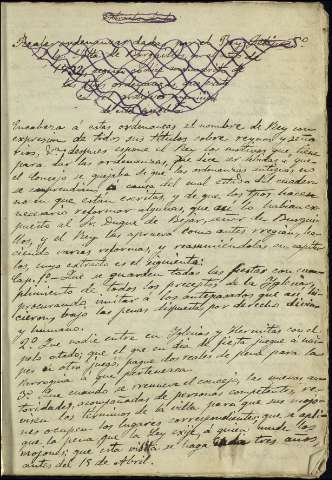 Reales ordenanzas dadas por el Rey
1822
Encabeza á estas ordenanzas el nombre de Rey con
expresion de todos sus títulos sobre reynos y seño
rios. Y despues espone el Rey los motivos que tiene
para dar las ordenanzas, que dice ser debidas á que
el Concejo se quejaba de que las ordenanzas antiguas no
se comprendian á causa del mal estado del cuader
no en que están escritas, y de que los tpos hacian
necesario reformar algunas que asi lo habian ex
puesto al Sr. Duque de Bejar, señor de Burgui
llos, y el Rey las aprueva como antes regian, ha
ciendo varias reformas, y reasumiendolas en capitu
los cuyo estracto es el siguiente:
Cap.º 1.º Que se guarden todas las fiestas con cum
plimiento de todos los preceptos de la Iglesia,
procurando imitar á los antepasados que asi lo hi
cieron, bajo las penas dispuestas por derecho divino
y humano.
2.º Que nadie entre en Iglesias y Hermitas con el
pelo atado; que el que en dia de fiesta juegue á nai
pes ú otro juego, pague dos reales de pena para la
Parroquia á que pertenezca.
3.º Que cuando se renueva el concejo, las nuevas au
toridades, acompañadas de personas competentes, re
visen los términos de la villa para que sus mojo
nes ocupen los lugares correspondientes, que se apli
que la pena que la ley exije á quien mude los
mojones; que esta visita se haga cada tres años,
antes del 15 de Abril.